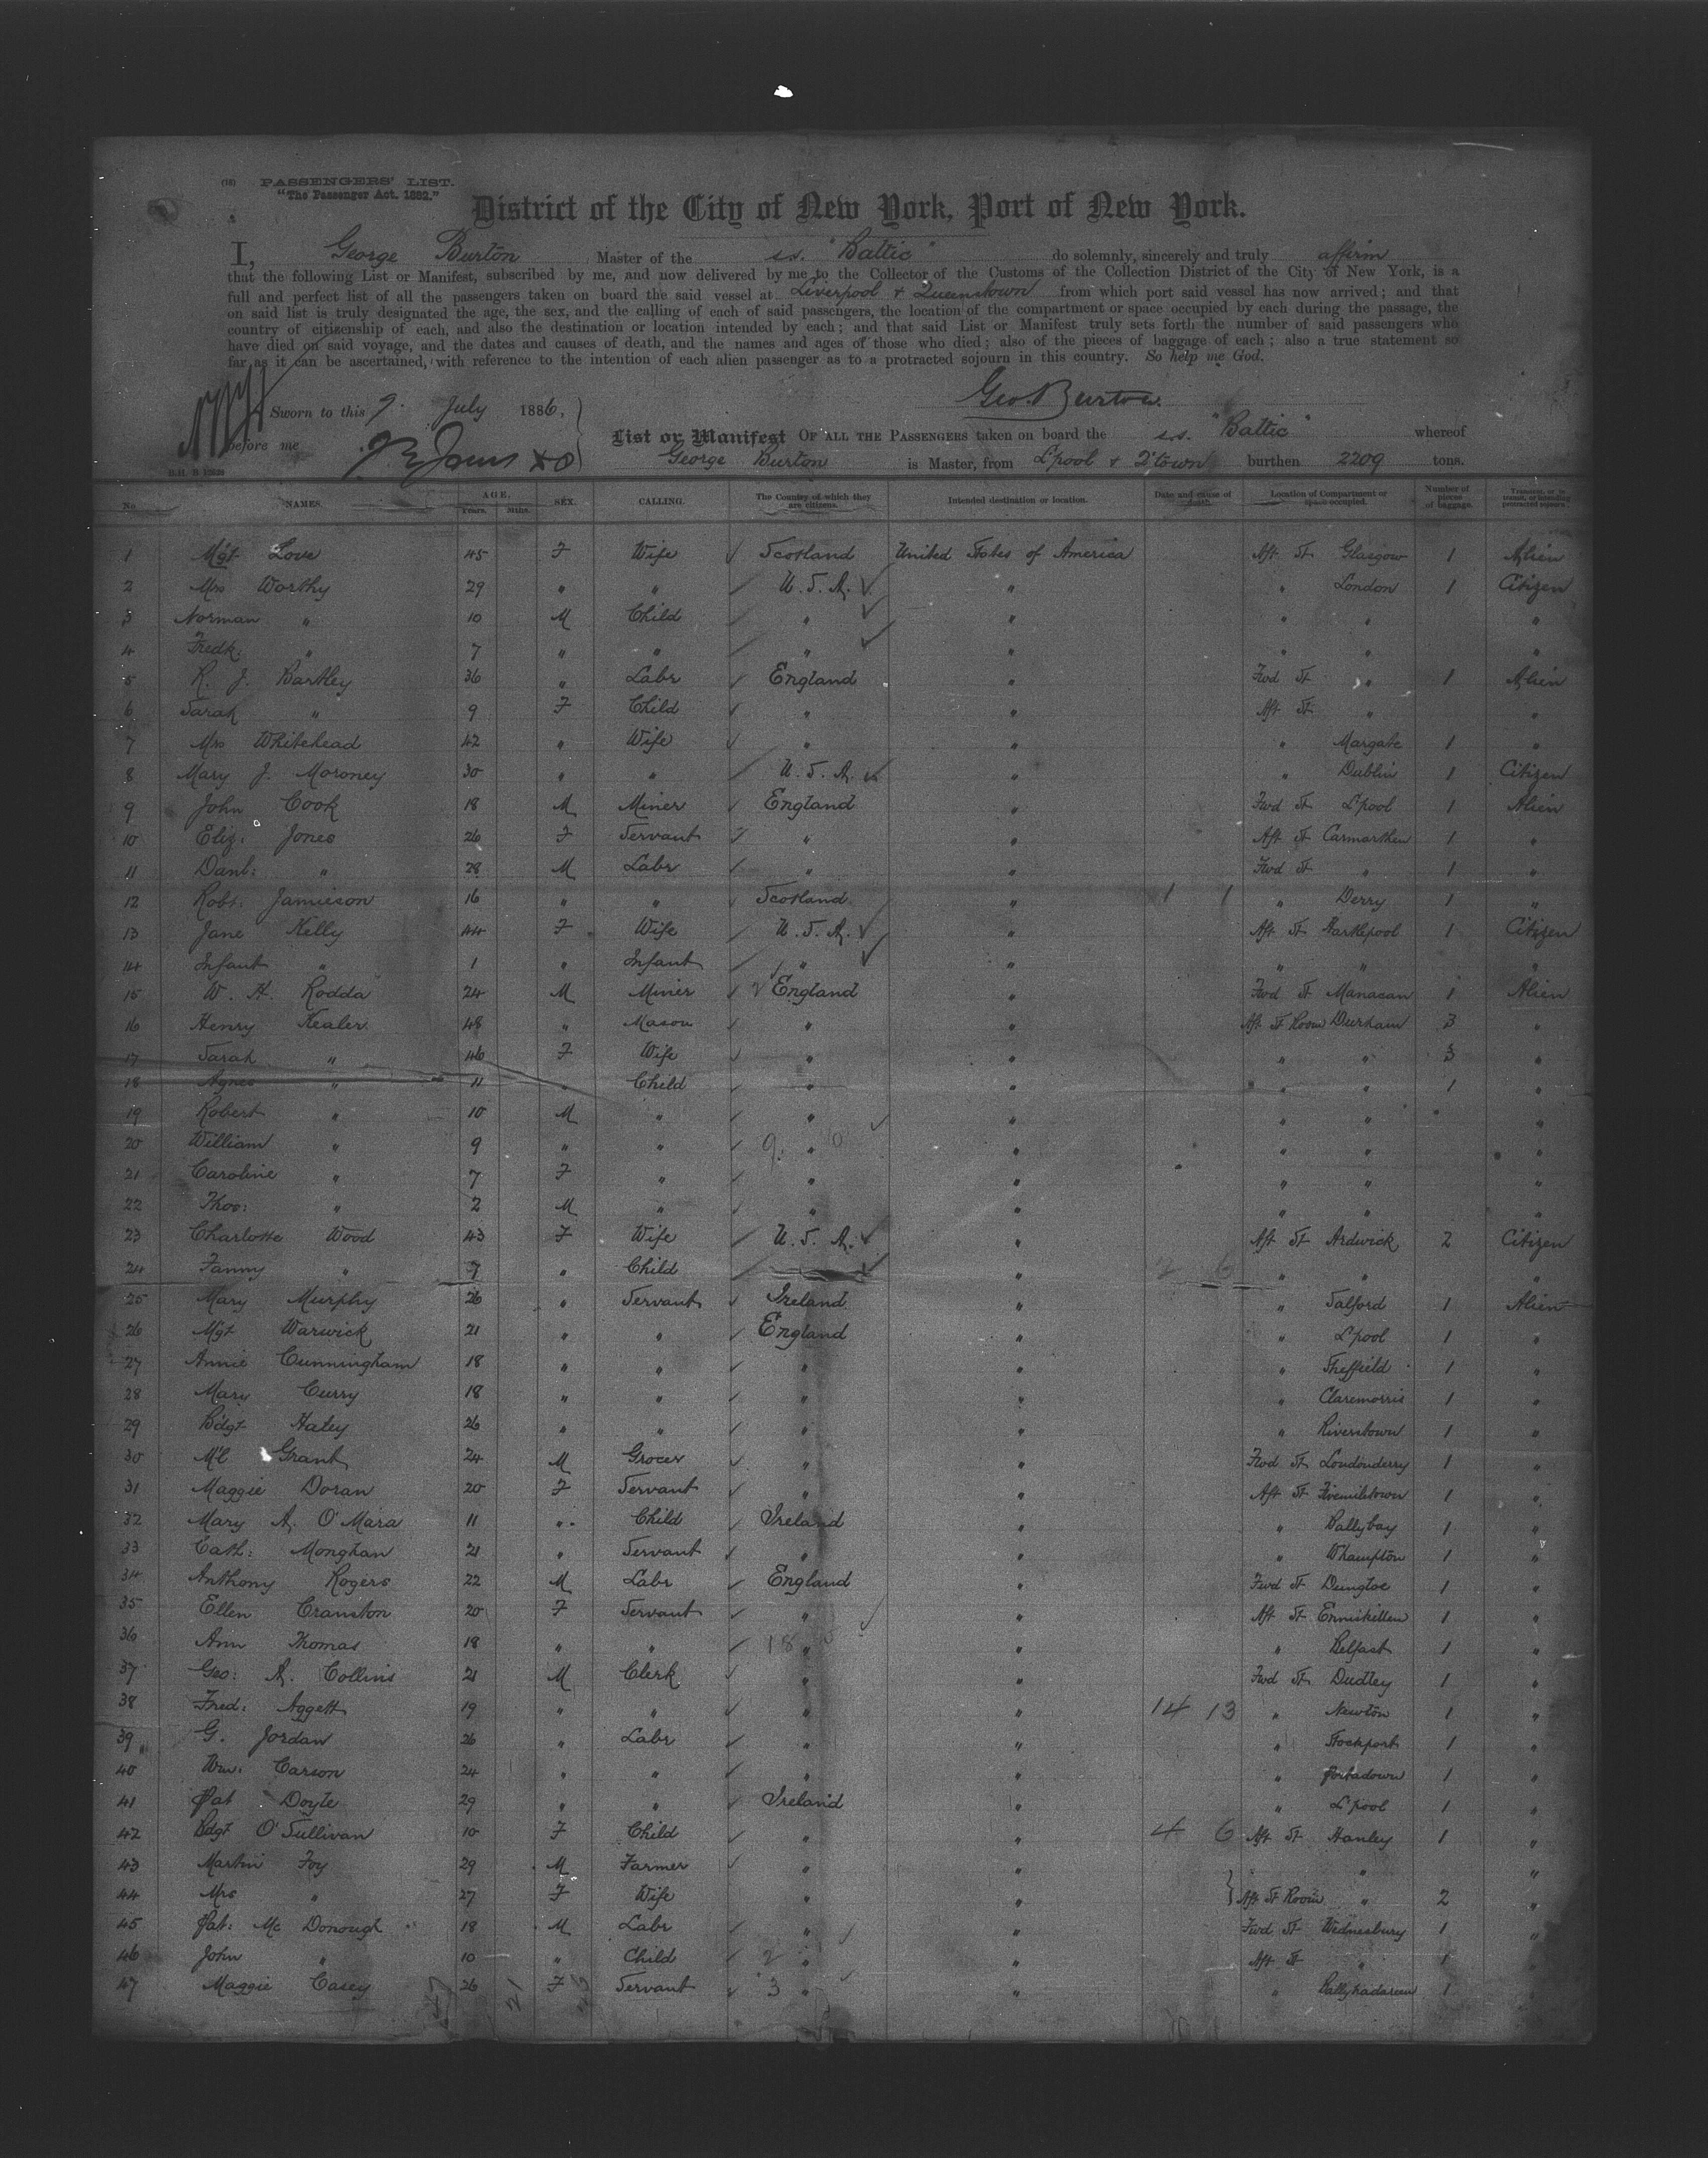 (18) PASSENGERS' LIST.
"The Passenger Act. 1882."
District of the City of New York, Port of New York.
I, George Burton Master of the s.s. "Baltic" do solemnly, sincerely and truly affirm
that the following List or Manifest, subscribed by me, and now delivered by me to the Collector of the Customs of the Collection District of the City of New York, is a
full and perfect list of all the passengers taken on board the said vessel at Liverpool & Queenstown from which port said vessel has now arrived; and that
on said list is truly designated the age, the sex, and the calling of each of said passengers, the location of the compartment or space occupied by each during the passage, the
country of citizenship of each, and also the destination or location intended by each; and that said List or Manifest truly sets forth the number of said passengers who
have died on said voyage, and the dates and causes of death, and the names and ages of those who died; also of the pieces of baggage of each; also a true statement so
far as it can be ascertained, with reference to the intention of each alien passenger as to a protracted sojourn in this country. So help me God.
Geo. Burton.
Sworn to this 9. July 1886,
before me
List or Manifest OF ALL THE PASSENGERS taken on board the s.s. "Baltic" whereof
George Burton is Master, from L'pool & Q'town burthen 2209 tons.
No. NAMES. AGE. Years. Mths. SEX. CALLING. The Country of which they are citizens. Intended destination or location. Date and cause of death. Location of Compartment or space occupied. Number of pieces of baggage. Transient, or in transit, or intending protracted sojourn.
1 Mgt Love 45 F Wife Scotland United States of America Aft St Glasgow 1 Alien
2 Mrs Worthy 29 " " U.S.A. " " London 1 Citizen
3 Norman " 10 M Child " " " " "
4 Fredk. " 7 " " " " " " "
5 R. J. Bartley 36 " Labr England " Fwd St " 1 Alien
6 Sarah " 9 F Child " " Aft St " "
7 Mrs Whitehead 42 " Wife " " " Margate 1 "
8 Mary J. Moroney 30 " " U.S.A. " " Dublin 1 Citizen
9 John Cook 18 M Miner England " Fwd St L'pool 1 Alien
10 Eliz: Jones 26 F Servant " " Aft St Carmarthen 1 "
11 Danl: " 28 M Labr " " Fwd St " 1 "
12 Robt: Jamieson 16 " " Scotland " 1 1 " Derry 1 "
13 Jane Kelly 44 F Wife U.S.A. " Aft St Hartlepool 1 Citizen
14 Infant " 1 " Infant " " " " "
15 W. H. Rodda 24 M Miner England " Fwd St Manacan 1 Alien
16 Henry Kealer 48 " Mason " " Aft St Room Durham 3 "
17 Sarah " 46 F Wife " " " " 3 "
18 Agnes " 11 " Child " " " " 1 "
19 Robert " 10 M " " " " " "
20 William " 9 " " " " " " "
21 Caroline " 7 F " " " " " "
22 Thos: " 2 M " " " " " "
23 Charlotte Wood 43 F Wife U.S.A. " Aft St Ardwick 2 Citizen
24 Fanny " 7 " Child " 2 6 " " "
25 Mary Murphy 26 " Servant Ireland " " Salford 1 Alien
26 Mgt Warwick 21 " " England " " L'pool 1 "
27 Annie Cunningham 18 " " " " " Sheffield 1 "
28 Mary Curry 18 " " " " " Claremorris 1 "
29 Bdgt Haley 26 " " " " " Riverstown 1 "
30 Ml Grant 24 M Grocer " " Fwd St Londonderry 1 "
31 Maggie Doran 20 F Servant " " Aft St Fivemiletown 1 "
32 Mary A. O'Mara 11 " Child Ireland " " Ballybay 1 "
33 Cath: Monghan 21 " Servant " " " Whampton 1 "
34 Anthony Rogers 22 M Labr England " Fwd St 1 "
35 Ellen Cranston 20 F Servant " " Aft St Enniskillen 1 "
36 Ann Thomas 18 " " " " " Belfast 1 "
37 Geo: A. Collins 21 M Clerk " " Fwd St Dudley 1 "
38 Fred: Aggett 19 " " " " 14 13 " Newton 1 "
39 G. Jordan 26 " Labr " " " Stockport 1 "
40 Wm: Carson 24 " " " " " Portadown 1 "
41 Pat Doyle 29 " " Ireland " " L'pool 1 "
42 Bdgt O'Sullivan 10 F Child " " 4 6 Aft St Hanley 1 "
43 Martin Foy 29 M Farmer " " " "
44 Mrs " 27 F Wife " " Aft St Room " 2 "
45 Pat: Mc Donough 18 M Labr " " Fwd St Wednesbury 1 "
46 John " 10 " Child " " Aft St " 1 "
47 Maggie Casey 26 F Servant " " " Ballyhadareen 1 "